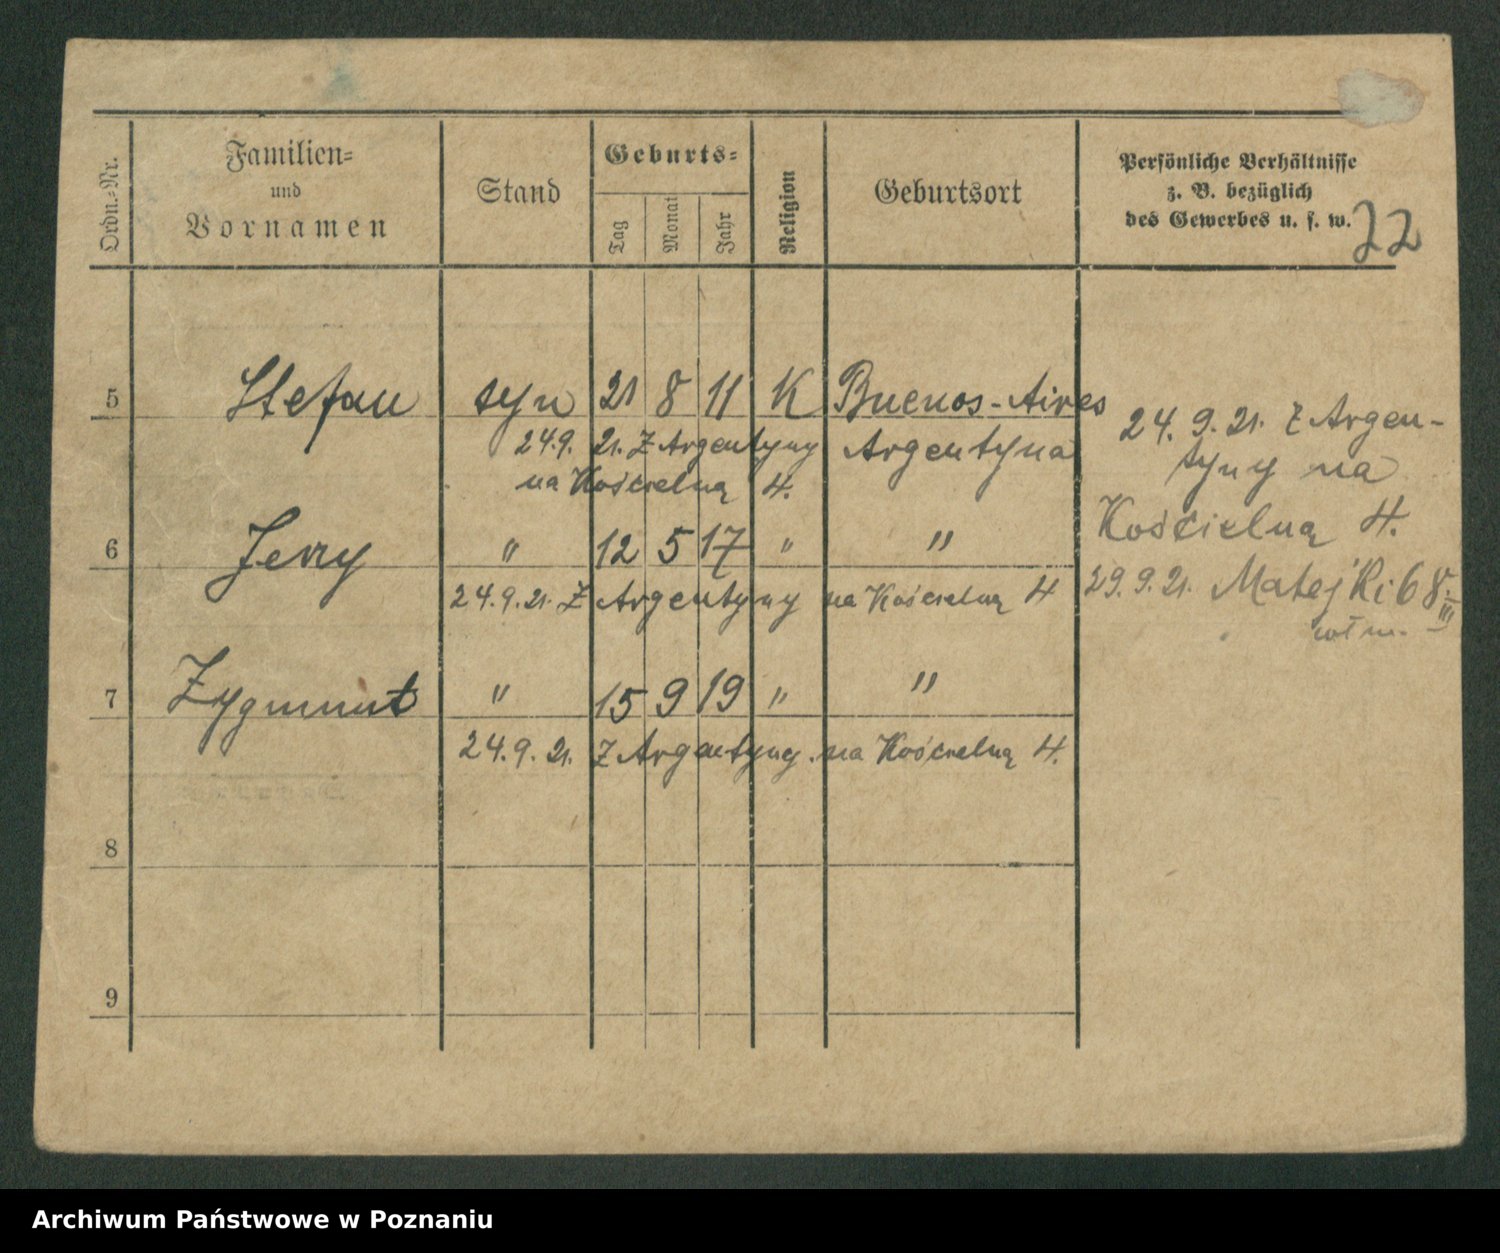 Ordn.-Nr.
Familien-
und
Vornamen
Stand
Geburts-
Tag
Monat
Jahr
Religion
Geburtsort
Persönliche Verhältnisse
z. B. bezüglich
des Gewerbes u. s. w.
22
5 Stefan syn 21 8 11 K Buenos-Aires
24.9. 21. Z Argentyny Argentyna
na Kościelną 4.
6 Jerzy " 12 5 17 " "
24.9.21. Z Argentyny na Kościelną 4
7 Zygmunt " 15 9 19 " "
24.9.21. Z Argentyny na Kościelną 4.
8
9
24.9.21. Z Argen-
tyny na
Kościelną 4.
29.9.21. Matejki 68 III
Archiwum Państwowe w Poznaniu